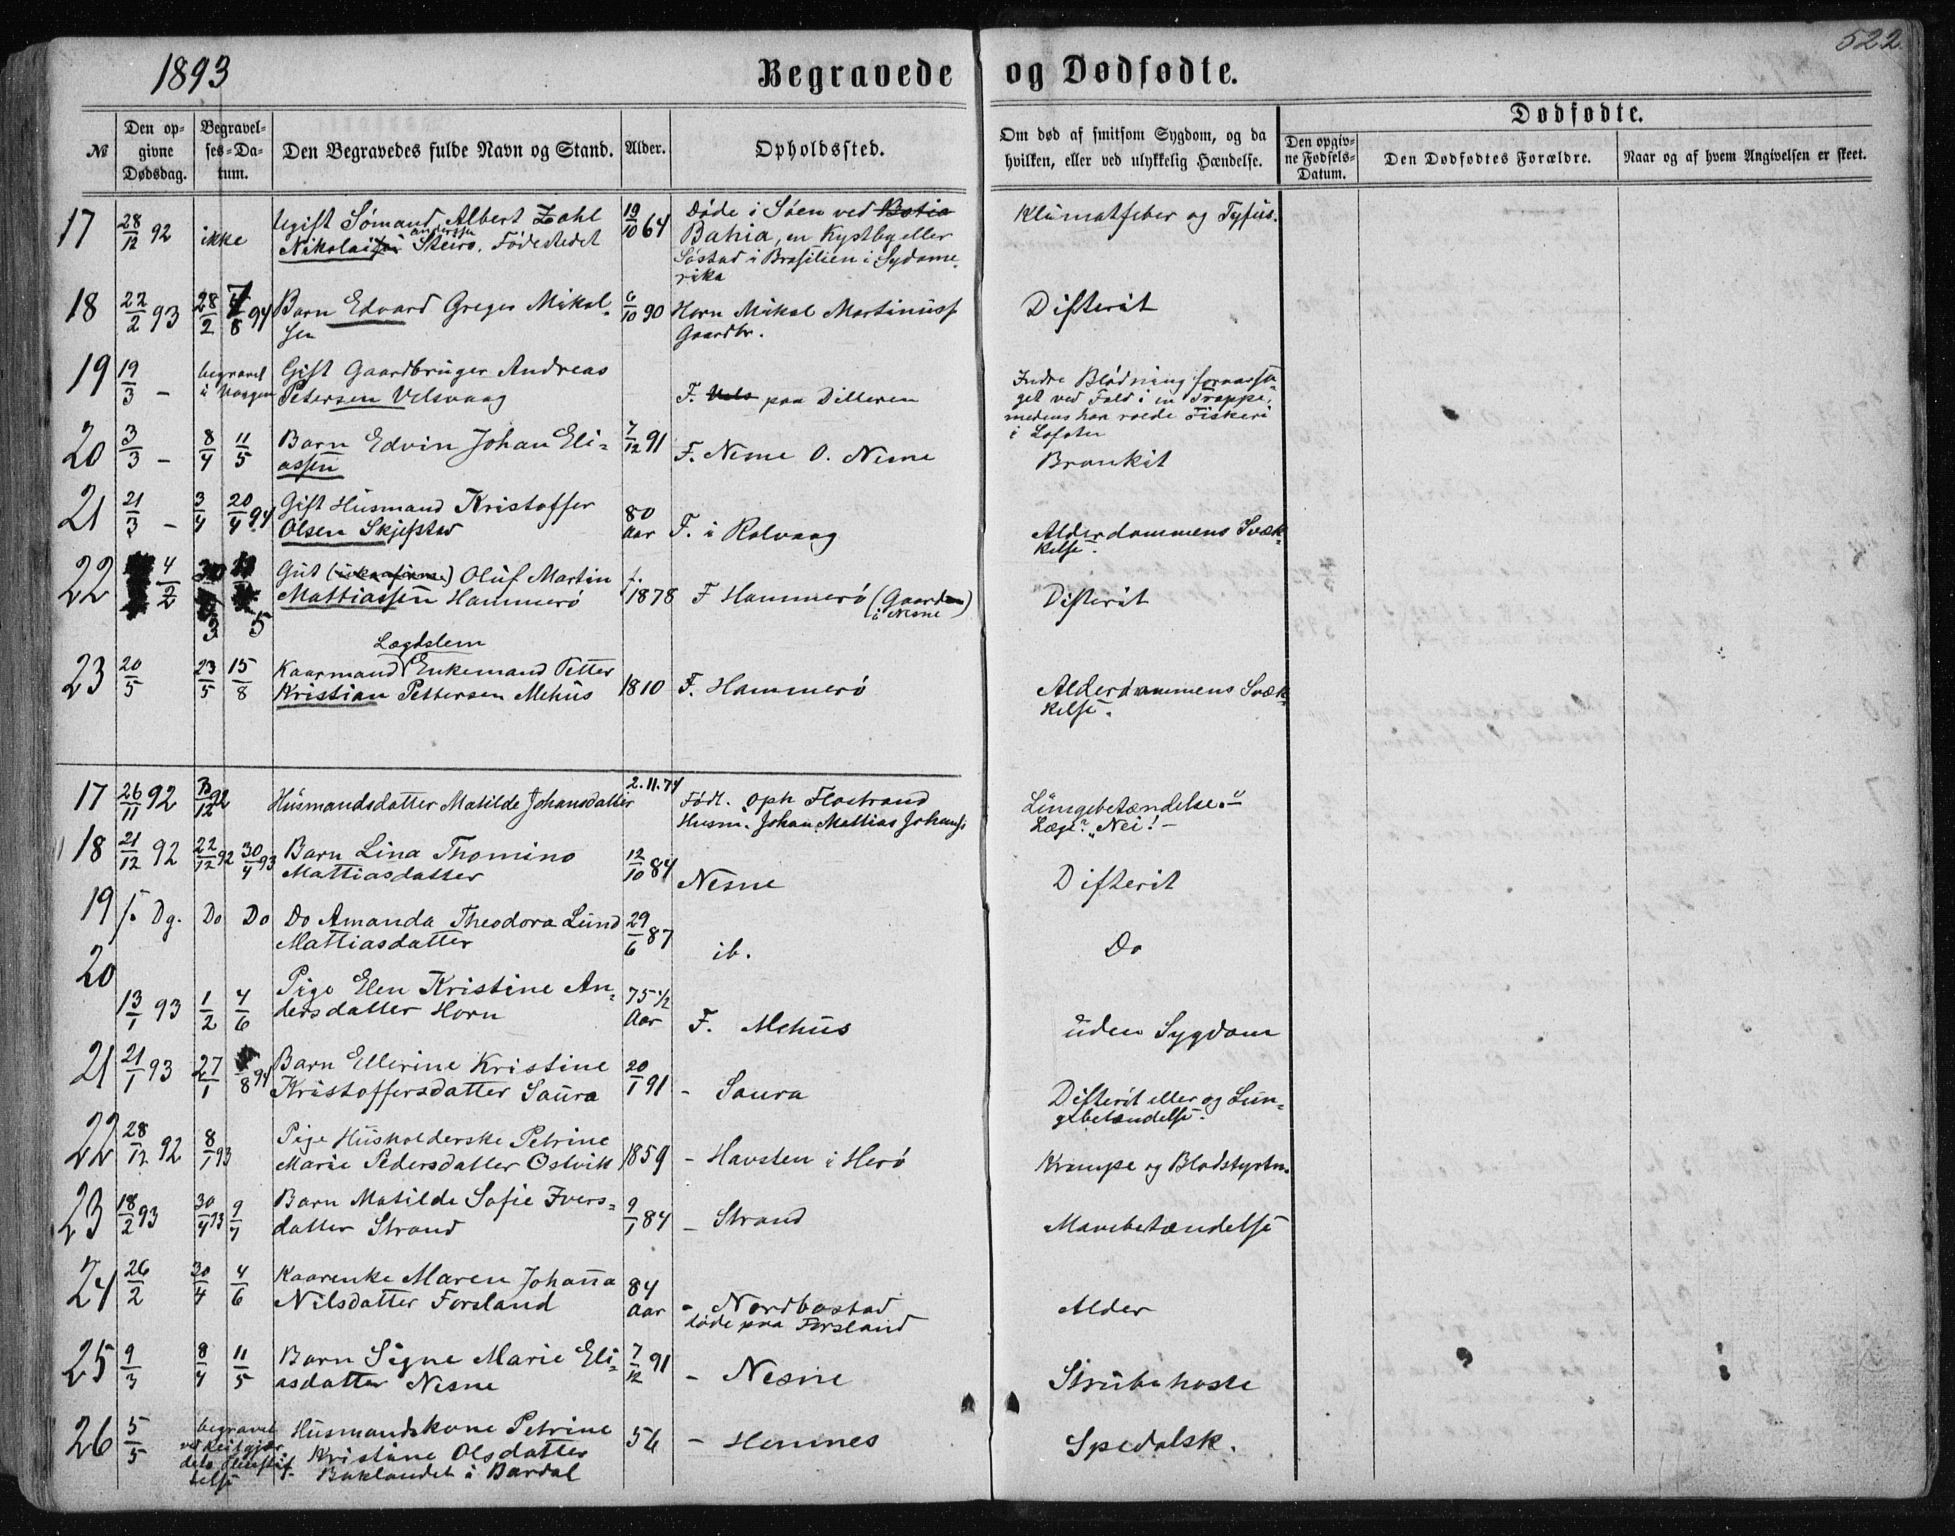 1893
Begravede og Dødfødte.
522
№
Den opgivne Dødsdag.
Begravelses-Datum.
Den Begravedes fulde Navn og Stand.
Alder.
Opholdssted.
Om død af smitsom Sygdom, og da hvilken, eller ved ulykkelig Hændelse.
Dødfødte.
Den opgivne Fødsels-Datum.
Den Dødfødtes Forældre.
Naar og af hvem Angivelsen er skeet.
17 28/12 92 ikke Ugift Sømand Albert Zahl 19/10 64 Døde i Søen ved Klimatfeber og Tyfus.
Nikolai Anderssen Steiro. Fødestedet Bahia, en Kystby eller
Søstad i Brasilien i Sydame-
rika
18 22/2 93 28/2 8 94 Barn Edvard Greger Mikal- 6/10 90 Horn Mikal Martinuss Difterit
sen Gaardbr.
19 19/3 - begravet Gift Gaardbruger Andreas Indre Blødning foraarsa-
i Vaagen Petersen Velsvaag F. paa Dilleren get ved Fald i en Trappe,
medens han roede Fiskeri
i Lofoten
20 3/3 - 8/4 11/5 Barn Edvin Johan Eli- 7/12 91 F. Nesne O. Nesne Bronkit
assen
21 21/3 - 3/4 20/4 94 Gift Husmand Kristoffer 80
Olsen Skjefstad Aar F. i Rølvaag Alderdommens Svæk-
kelse.
22 4/2 3 5 Gut Oluf Martin f.
Mattiassen Hammerø 1878 F Hammerø (Gaard Difterit
i Nesne)
Lægdslem
23 20/5 23/5 15/8 Kaarmand Enkemand Petter
Kristian Pettersen Mehus 1810 F. Hammerø Alderdommens Svæk-
kelse.
17 26/11 92 3/12 92 Husmandsdatter Matilde Johansdatter 2.11.74 Født. Oph Flostrand Lungebetændelse."
Husm. Johan Mattias Johanss Læge? "Nei!-
18 21/12 92 22/12 92 30/4 93 Barn Lina Thomine 12/10 84
Mattiasdatter Nesne Difterit
19 s. Dg. Do Do Do Amanda Theodora Lund 29/6 87
Mattiasdatter ib. Do
20 13/1 93 1/2 4/6 Pige Elen Kristine An- 75 1/2
dersdatter Horn Aar F. Mehus uden Sygdom
21 21/1 93 27/1 8 94 Barn Ellerine Kristine 20/1 91
Kristoffersdatter Saura - Saura Difterit eller og Lun-
gebetændelse.
22 28/12 92 8/1 93 Pige Husholderske Petrine
Marie Pedersdatter Ostvik 1859 - Havsten i Herø Krampe og Blodstyrtn.
23 18/2 93 30/4 93 9/7 Barn Matilde Sofie Ivers- 9/1 84
datter Strand - Strand Mavebetændelse
24 26/2 30/4 4/6 Kaarenke Maren Johanna 84
Nilsdatter Forsland Aar - Nordbostad Alder
døde paa Forsland
25 9/3 8/4 11/5 Barn Signe Marie Eli- 7/12 91
asdatter Nesne - Nesne Strubehoste
26 5/5 begravet Husmandskone Petrine 56 - Hemnes Spedalsk.
Kristine Olsdatter
Baklandet i Bardal